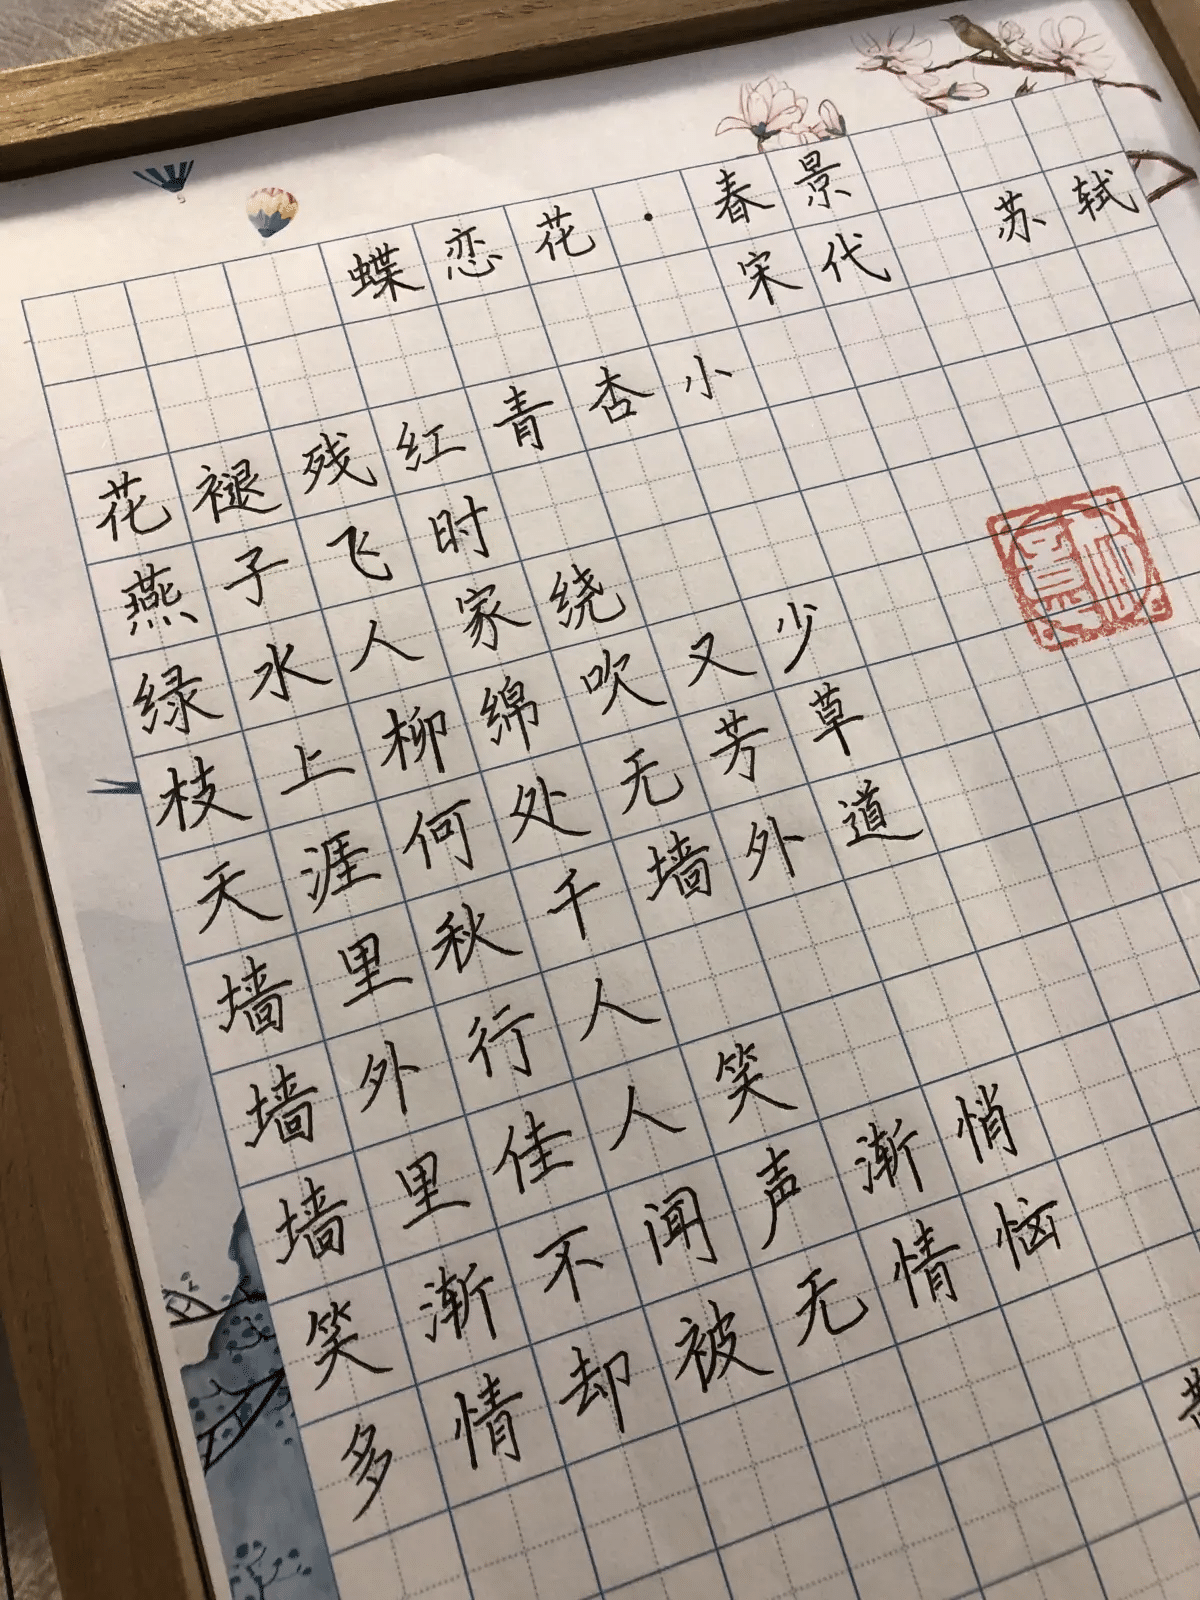 蝶恋花·春景
宋代 苏轼
花褪残红青杏小
燕子飞时
绿水人家绕
枝上柳绵吹又少
天涯何处无芳草
墙里秋千墙外道
墙外行人
墙里佳人笑
笑渐不闻声渐悄
多情却被无情恼